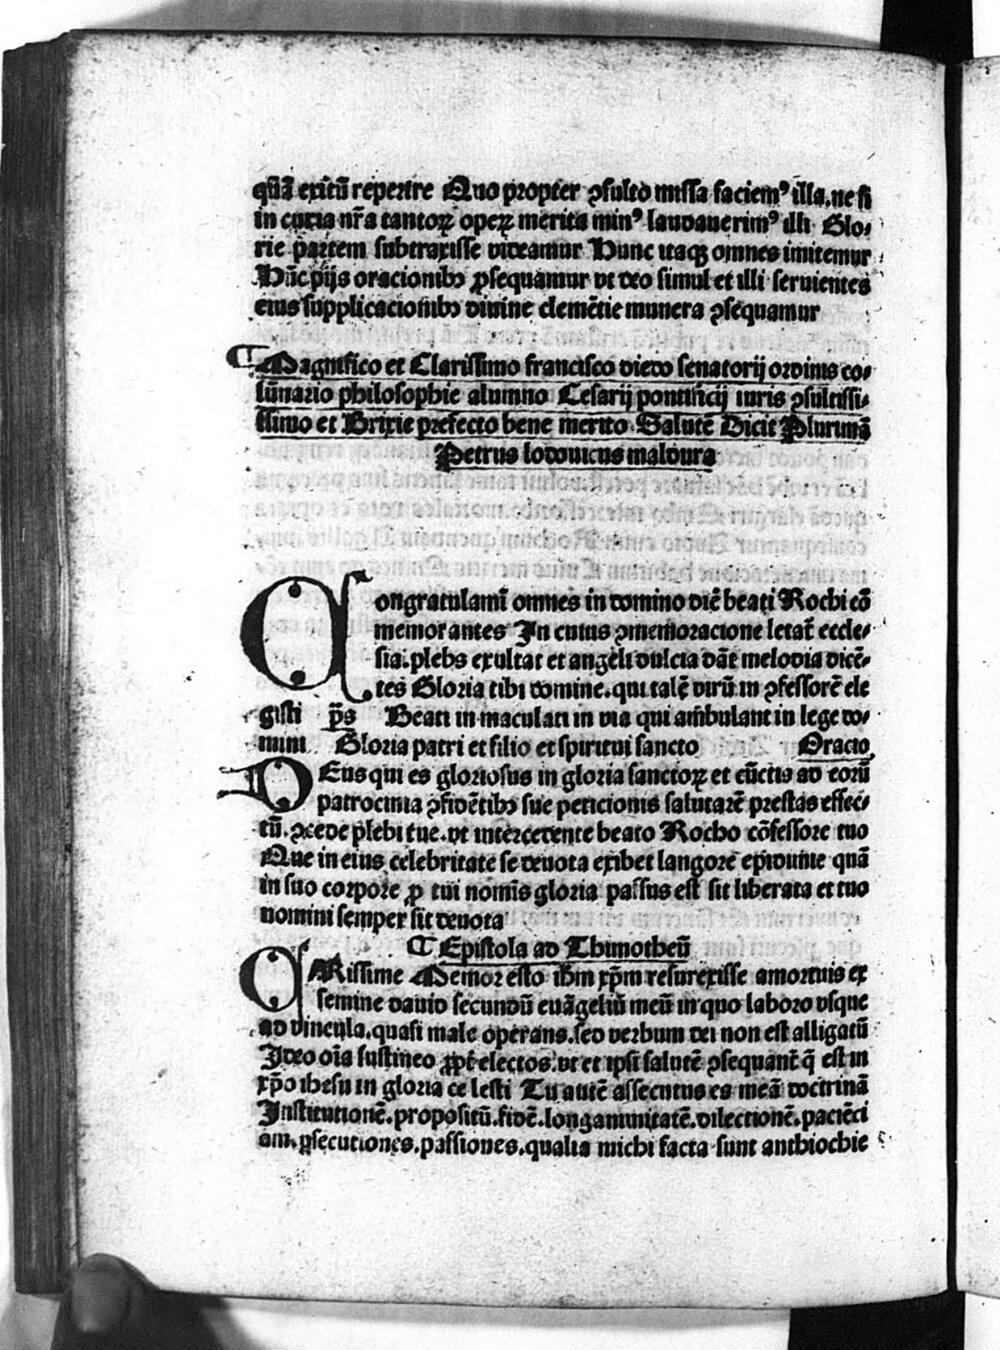 qm̄ā exitū repertre Quo propter ꝯsulto missa faciemꝰ illa. ne si
in curia nr̄a tantoꝝ opeꝝ merita minꝰ laudauerimꝰ illi Glo-
rie ꝑartem subtraxisse videamur Hunc itaqꝫ omnes imitemur
Hūc pijs oracionibꝫ ꝓsequamur vt deo simul et illi seruientes
eius supplicacionibꝫ diuine clemētie munera ꝯsequamur
¶ Magnifico et Clarissimo francisco diedo senatorij ordinis co-
lūnario philosophie alumno Cesarij pontificij iuris ꝯsultissi-
ssimo et Brixie prefecto bene merito Salutē Dicit Plurimā
Petrus lodouicus maldura
Congratulamī omnes in domino diē beati Rochi cō
memorantes In cuius ꝯmemoracione letat̄ eccle-
sia. plebs exultat et angeli dulcia dāt melodia dicē-
tes Gloria tibi domine. qui talē virū in ꝯfessorē ele
gisti p̄s Beati in maculati in via qui ambulant in lege do-
mini Gloria patri et filio et spiritui sancto Oracio
DEus qui es gloriosus in gloria sanctoꝝ et cūctis ad eorū
patrocinia ꝯfidētibꝫ sue peticionis salutarē prestas effec-
tū. ꝯcede plebi tue. vt intercedente beato Rocho cōfessore tuo
Que in eius celebritate se deuota exibet langore epidimie quā
in suo corpore ꝓ tui nomīs gloria passus est sit liberata et tuo
nomini semper sit deuota
¶ Epistola ad Thimotheū
CARissime Memor esto ihm̄ xp̄m resurexisse amortuis ex
semine dauid secundū euāgeliū meū in quo laboro vsque
ad vincula. quasi male operans. sed verbum dei non est alligatū
Ideo oīa sustineo ꝓpt̄ electos. vt et ipsi salutē ꝯsequant̄ q̄ est in
xp̄o ihesu in gloria ce lesti Tu autē assecutus es meā doctrinā
Institutionē. propositū. fidē. longanimitatē. dilectionē. paciēci
am. ꝑsecutiones. passiones. qualia michi facta sunt anthiochie